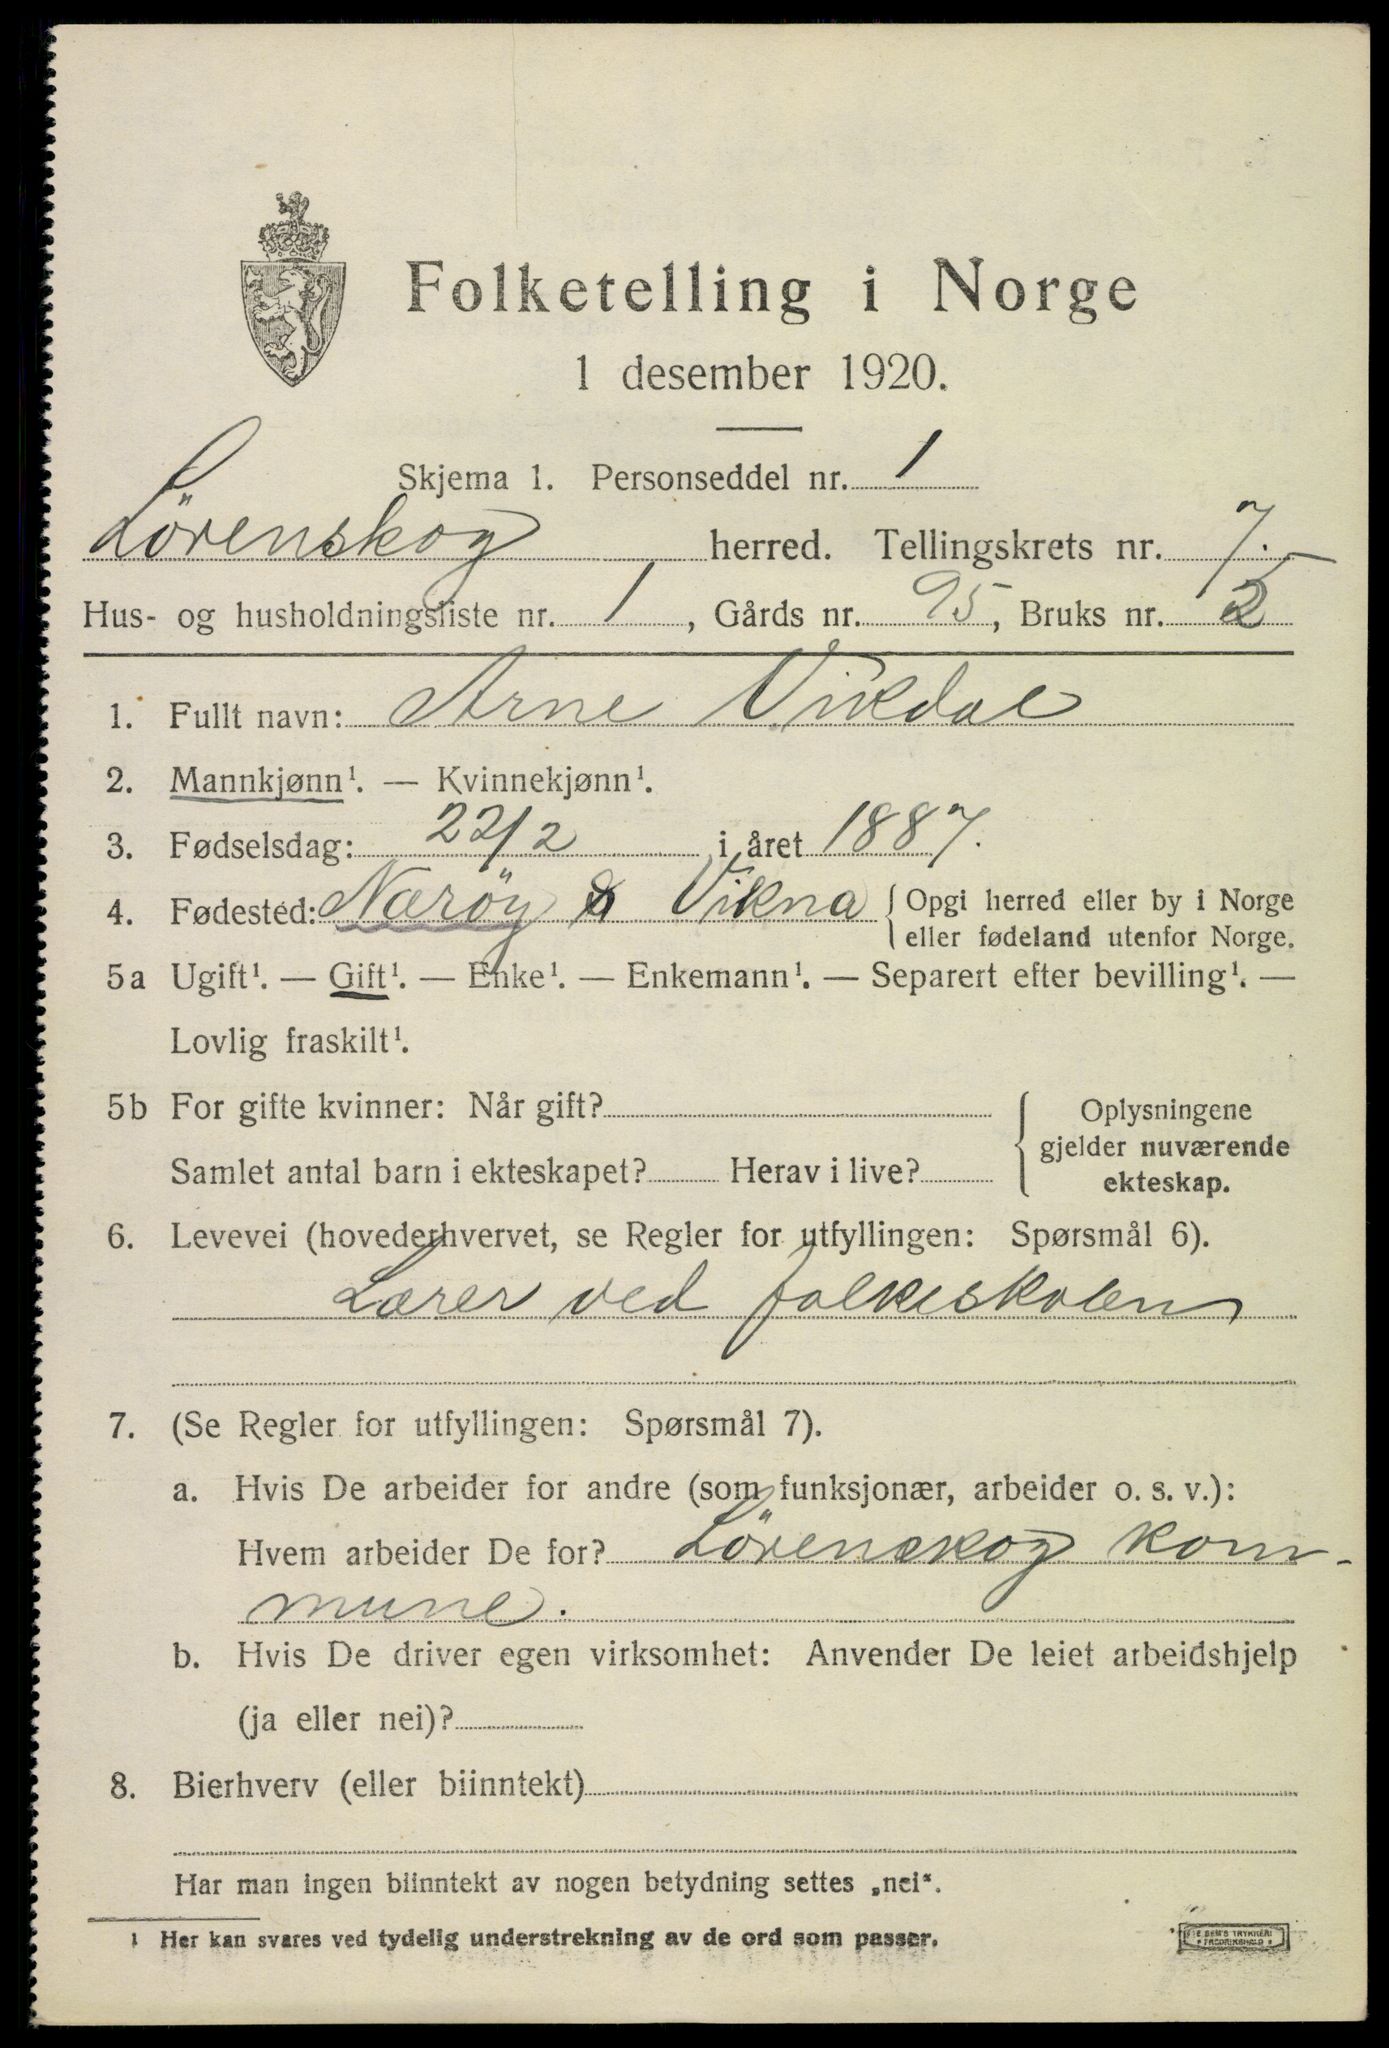 Folketelling i Norge
1 desember 1920.
Skjema 1. Personseddel nr. 1
Lörenskog herred. Tellingskrets nr. 7.
Hus- og husholdningsliste nr. 1, Gårds nr. 95, Bruks nr. 2
1. Fullt navn: Arne Vikdal
2. Mannkjønn¹. — Kvinnekjønn¹.
3. Fødselsdag: 22/2 i året 1887.
4. Fødested: Næröy & Vikna { Opgi herred eller by i Norge
eller fødeland utenfor Norge.
5a Ugift¹. — Gift¹. — Enke¹. — Enkemann¹. — Separert efter bevilling¹. —
Lovlig fraskilt¹.
5b For gifte kvinner: Når gift? { Oplysningene
gjelder nuværende
Samlet antal barn i ekteskapet? Herav i live? ekteskap.
6. Levevei (hovederhvervet, se Regler for utfyllingen: Spørsmål 6).
Lærer ved folkeskolen
7. (Se Regler for utfyllingen: Spørsmål 7).
a. Hvis De arbeider for andre (som funksjonær, arbeider o. s. v.):
Hvem arbeider De for? Lörenskog kom-
mune.
b. Hvis De driver egen virksomhet: Anvender De leiet arbeidshjelp
(ja eller nei)?
8. Bierhverv (eller biinntekt)
Har man ingen biinntekt av nogen betydning settes „nei“.
1 Her kan svares ved tydelig understrekning av de ord som passer.